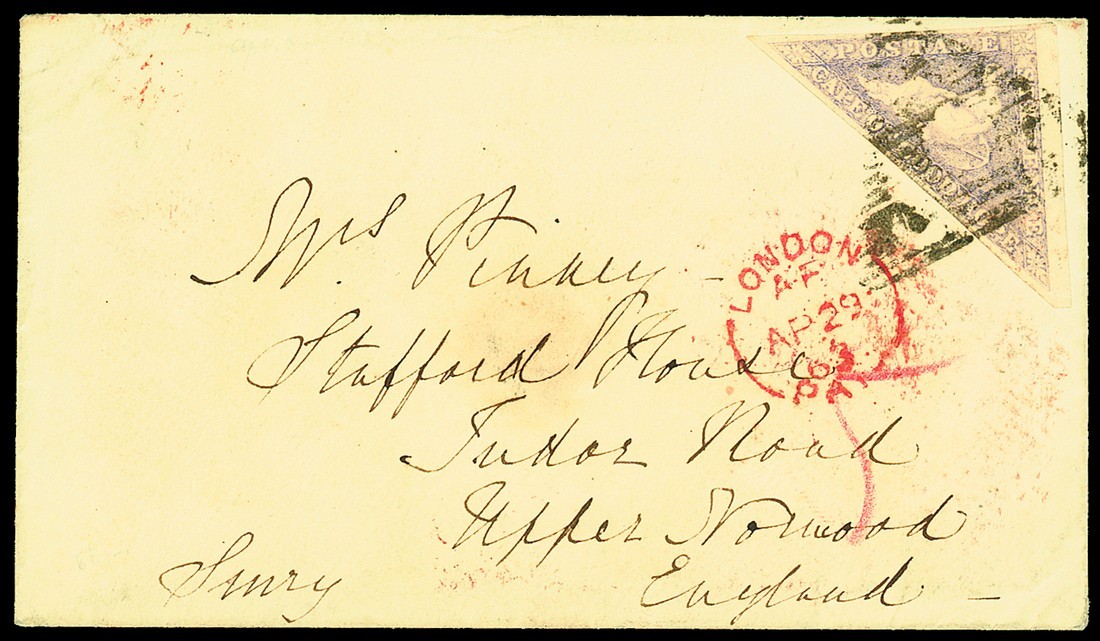 POSTAGE
CAPE OF GOOD
LONDON
AP 29
PAI
Mrs Pinney -
Stafford House
Tudor Road
Upper Norwood
England -